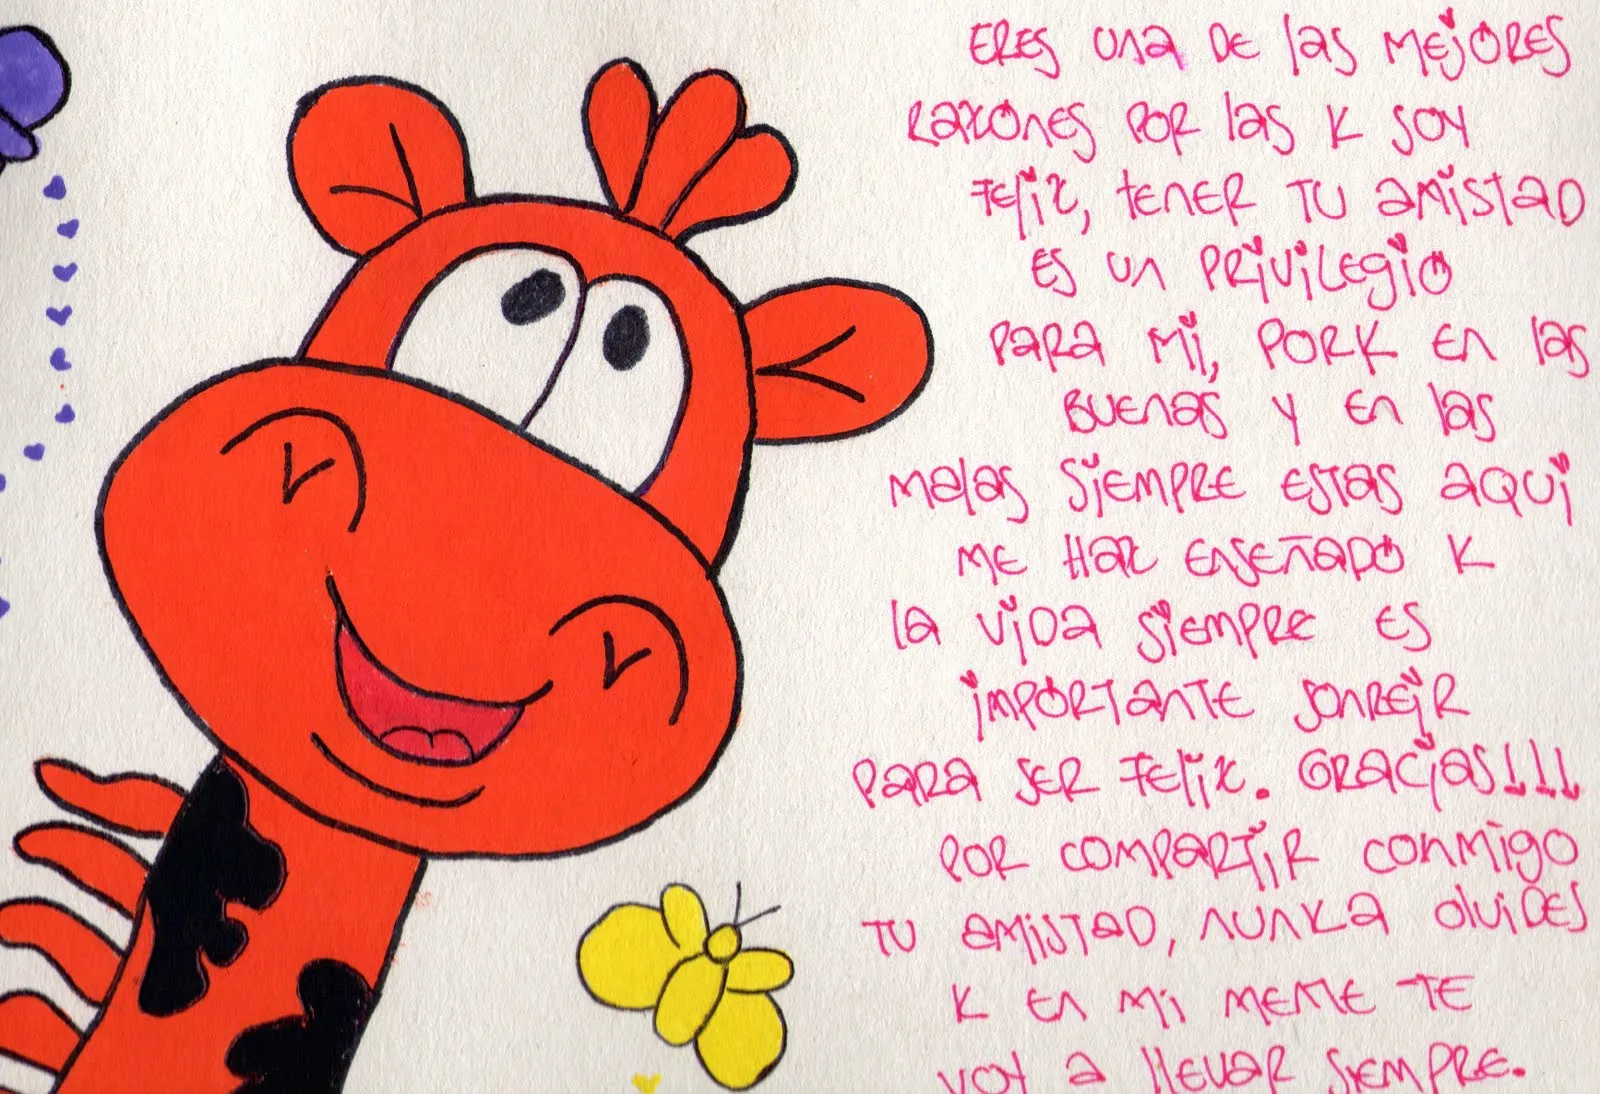 ERES UNA DE las MEJORES
RAZONES POR las K SOY
FEliz, TENER TU AMISTAD
ES UN PRIVILEGIO
PARA Mi, PORK EN las
BUENAS Y EN las
MAlas SiEMPRE ESTAS AQUi
ME HAZ ENSEÑADO K
la ViDA SiEMPRE ES
iMPORTANTE SONREiR
PARA SER FEliz. GRACiAS!!!
POR COMPARTiR CONMiGO
TU AMiSTAD, NUNKA OlViDES
K EN Mi MENTE TE
VOY A llEVAR SiEMPRE.